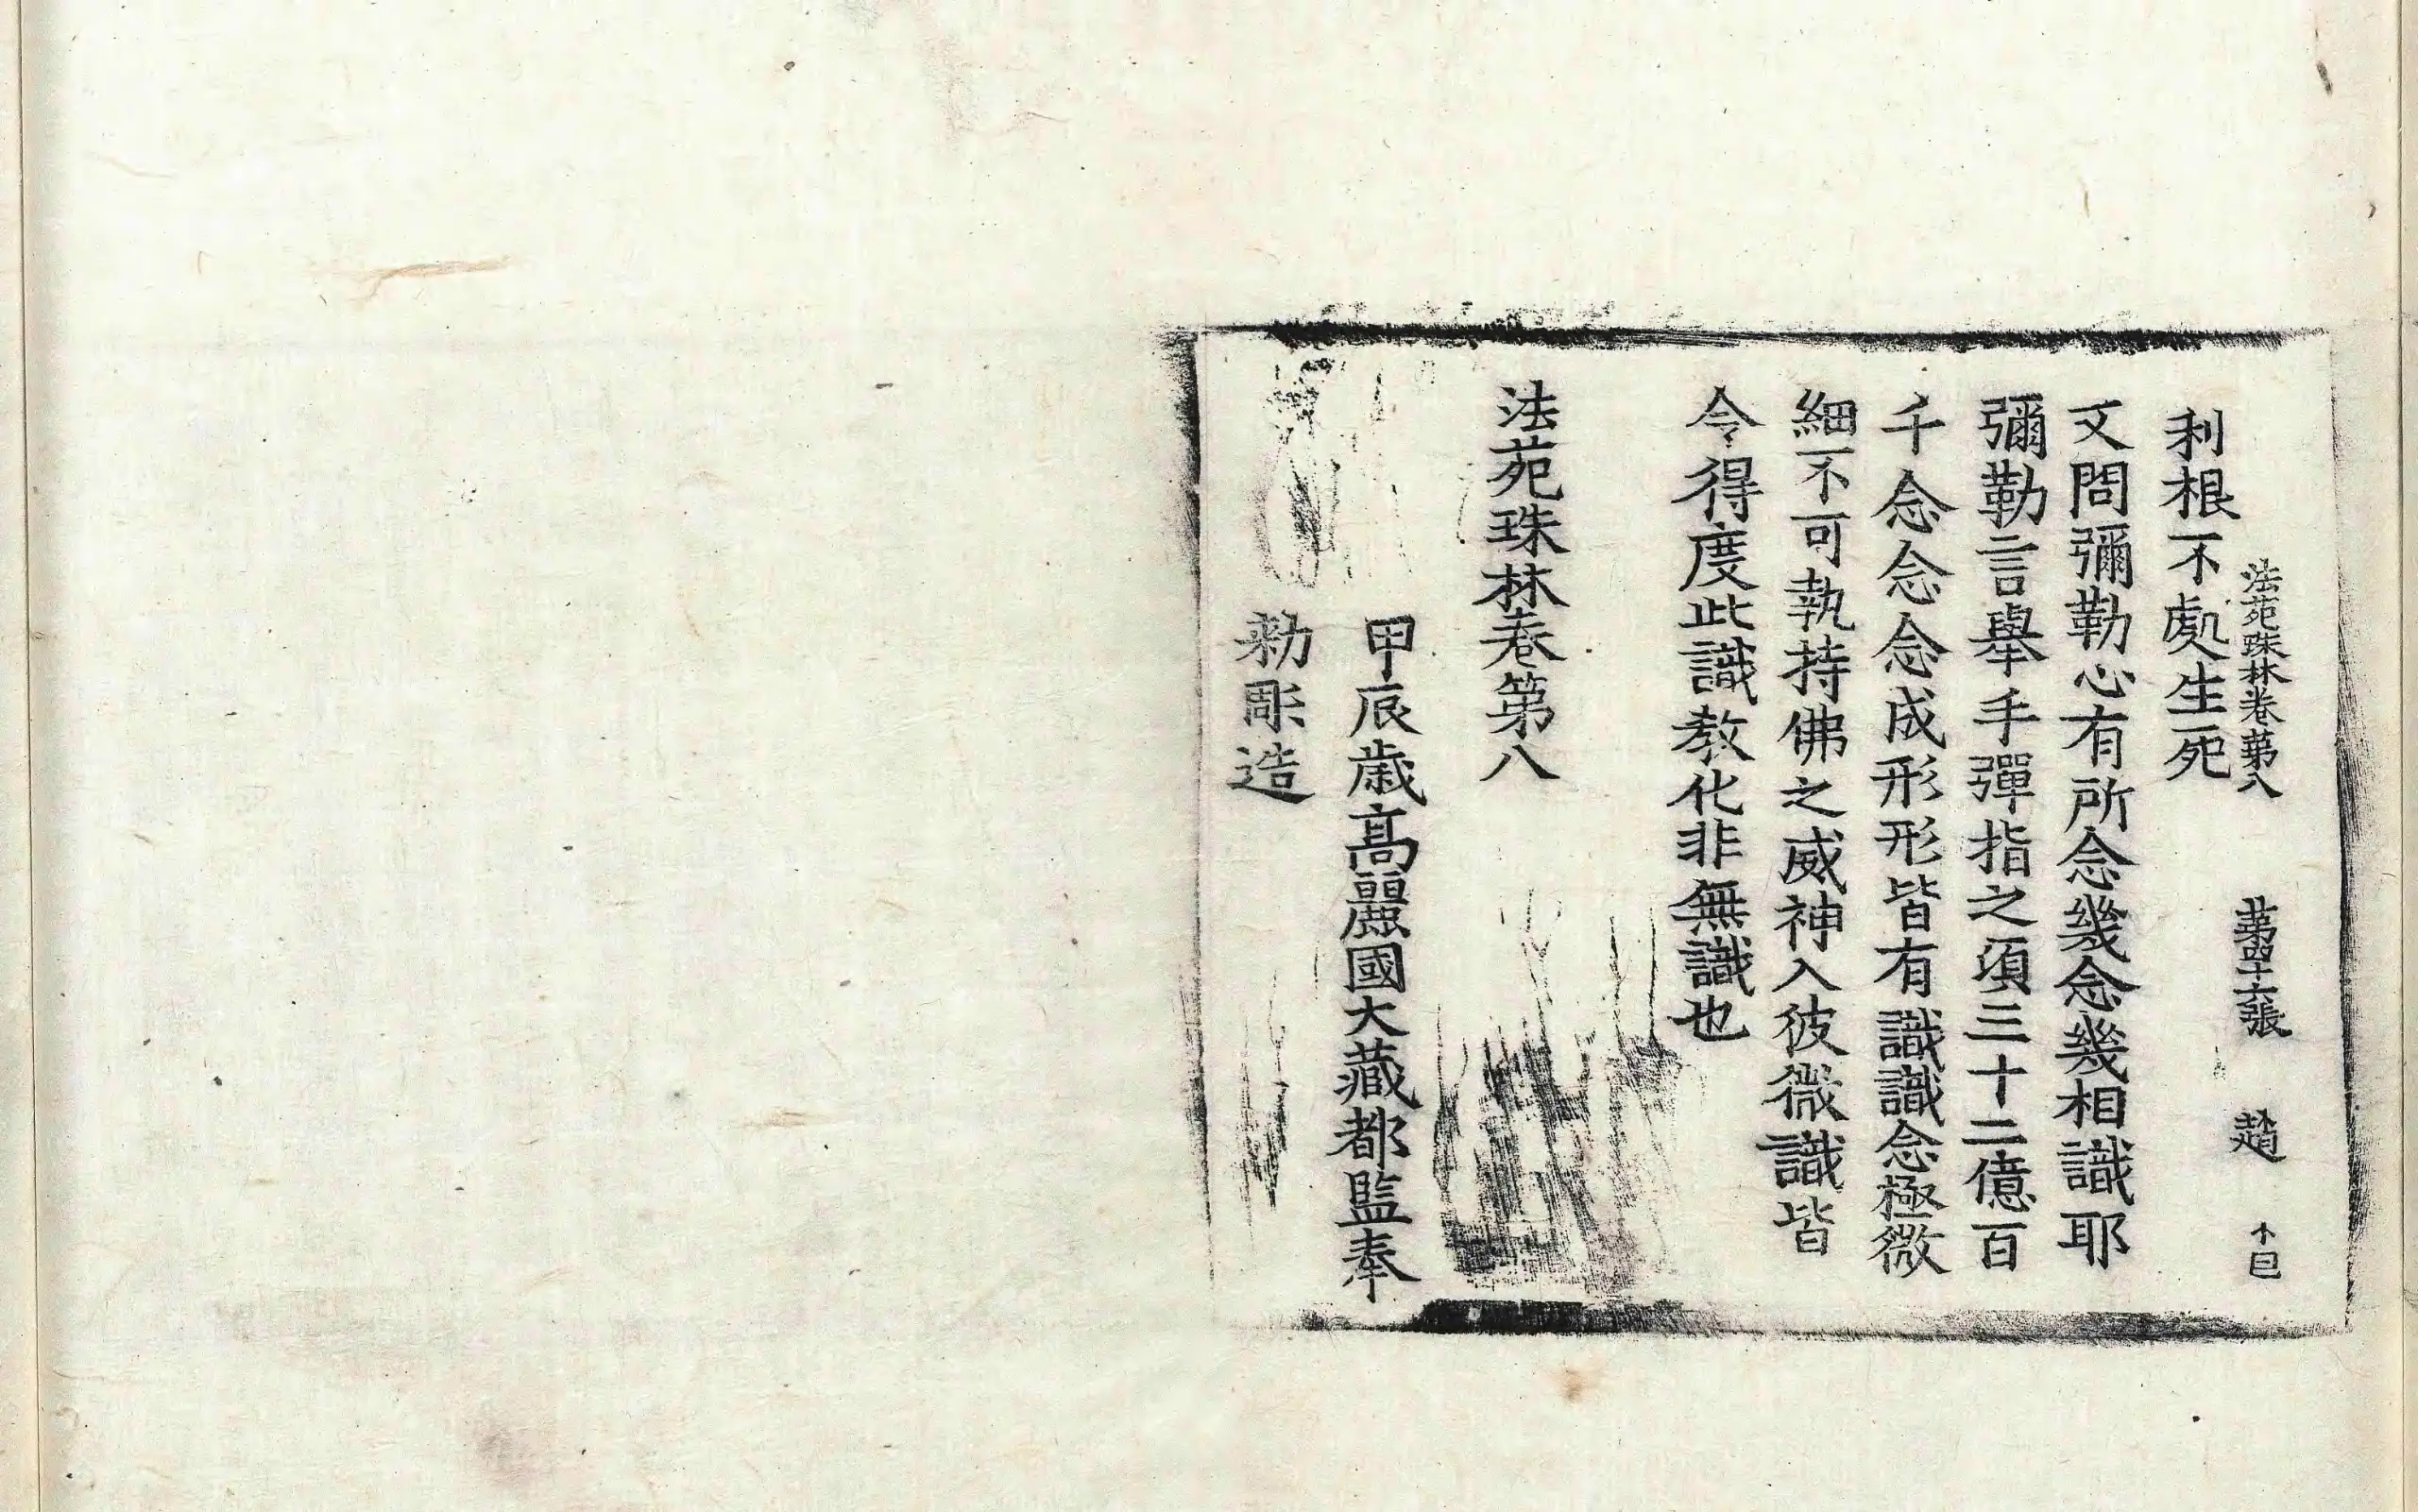 法苑珠林卷苐八　苐四十六張　趙
利根不處生死
文問彌勒心有所念幾念幾相識耶
彌勒言擧手彈指之須三十二億百
千念念念成形形皆有識識念極微
細不可執持佛之威神入彼微識皆
令得度此識教化非無識也
法苑珠林卷第八
甲辰歲高麗國大藏都監奉
勑彫造